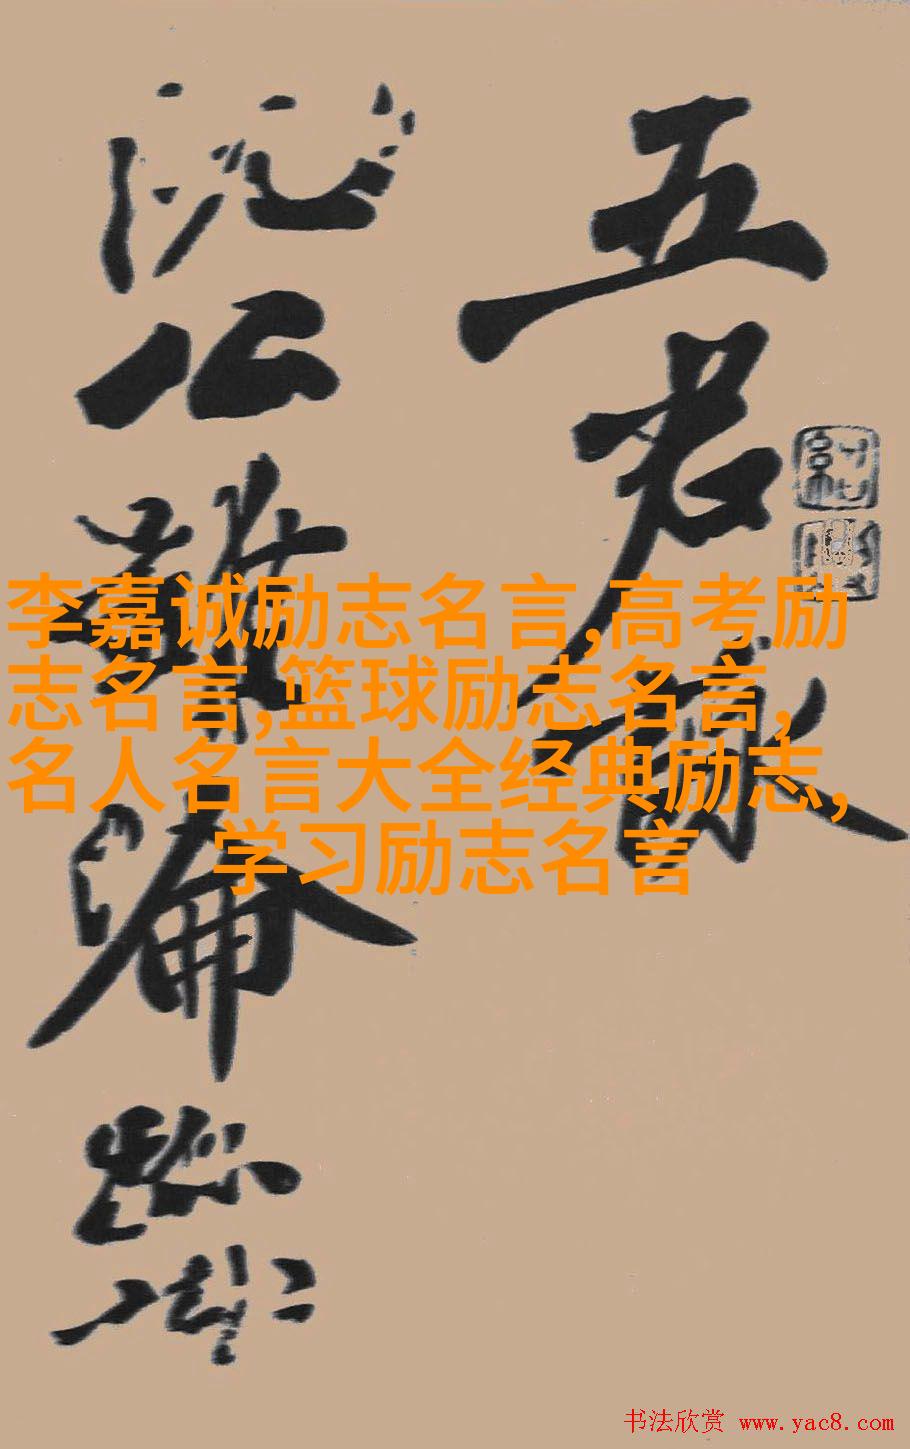 五君詠
阮公雖淪跡
李嘉诚励志名言,高考励
志名言,篮球励志名言,
名人名言大全经典励志,
学习励志名言
书法欣赏 www.yac8.com